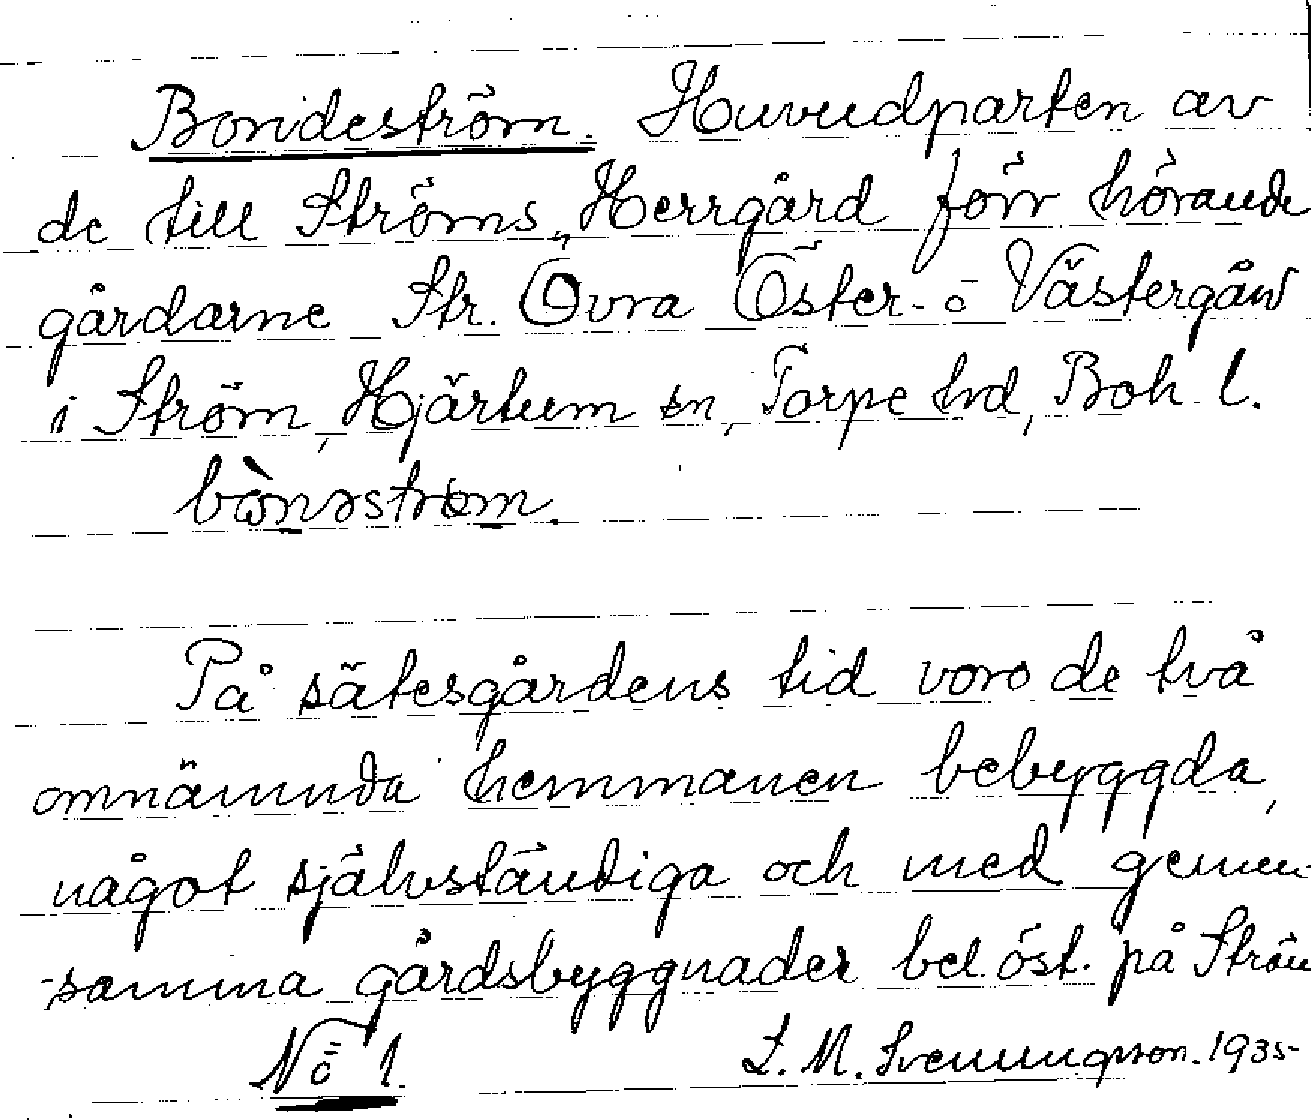 Bondeström. Huvudparten av
de till Ströms Herrgård förr hörande
gårdarne Str. Övra Öster- o Västergård
i Ström, Hjärtum sn, Torpe hd, Boh l.
bònəstrɵm.
På sätesgårdens tid voro de två
omnämnda hemmanen bebyggda,
något självständiga och med gemen-
-samma gårdsbyggnader bel. öst. på Ström
No 1.
L. M. Svenungsson. 1935